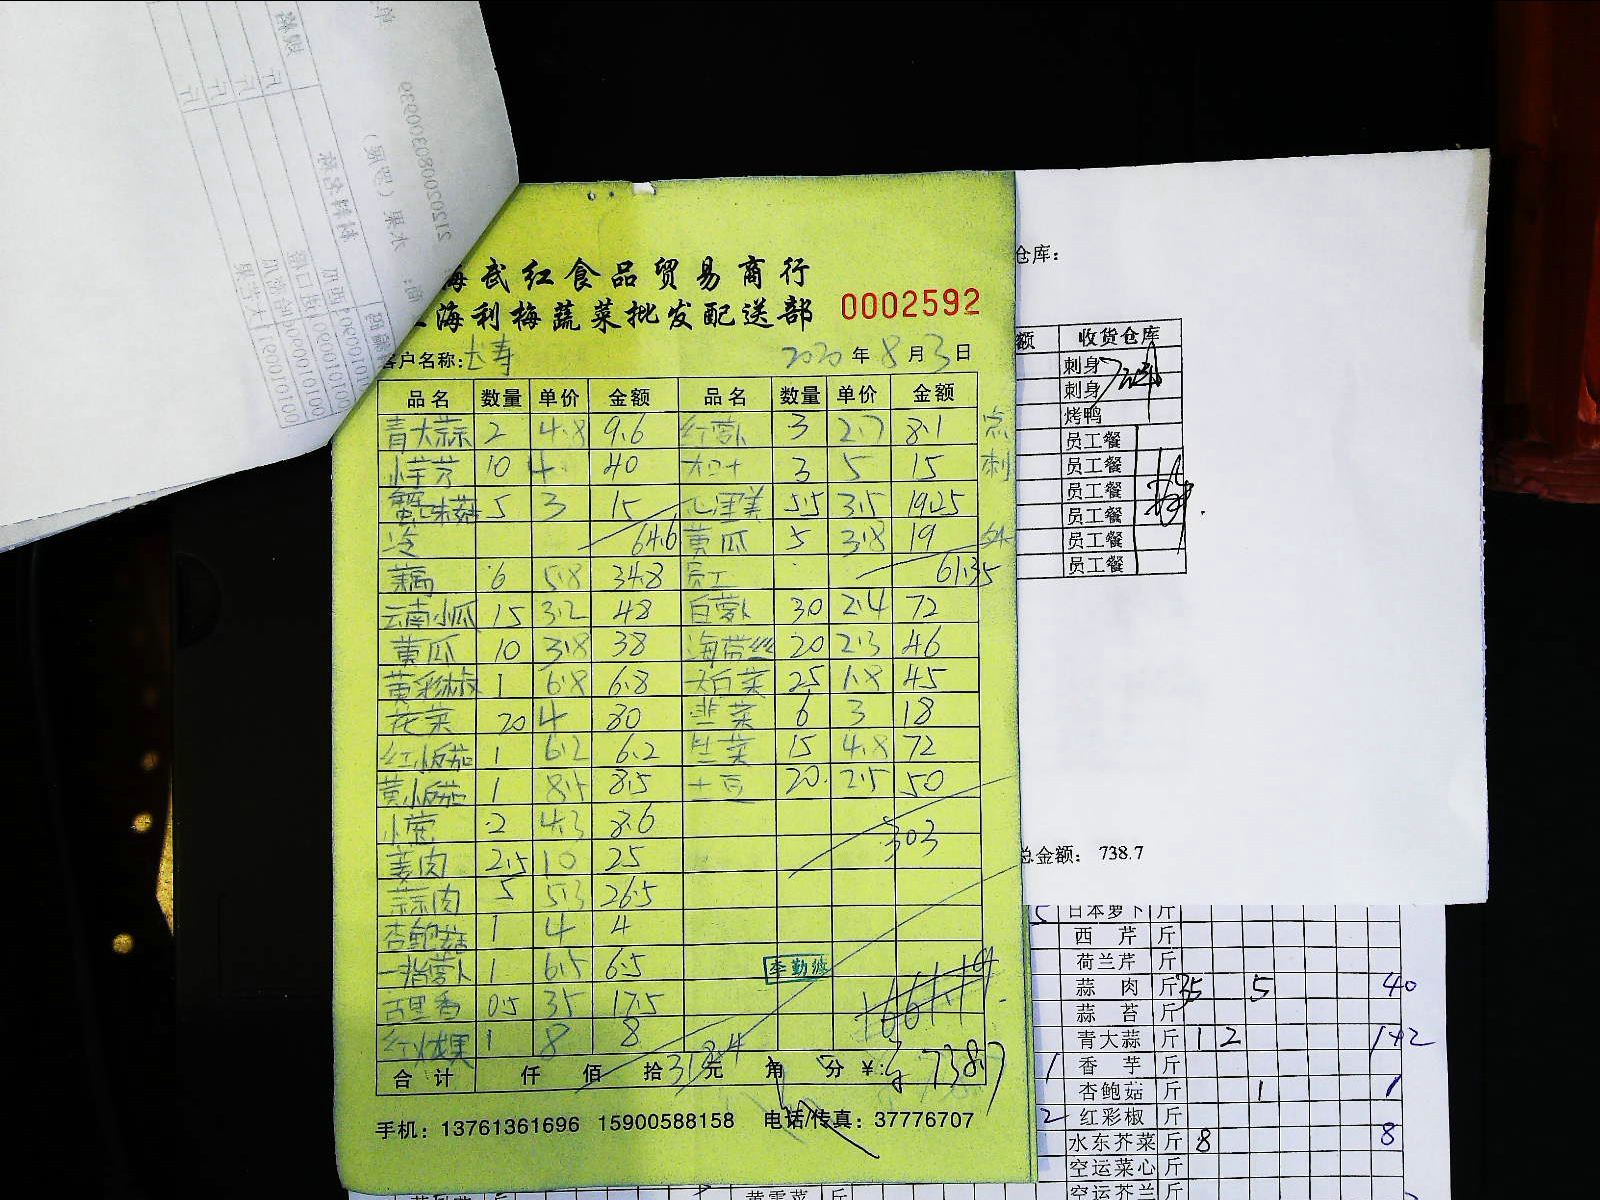 海武红食品贸易商行
上海利梅蔬菜批发配送部 0002592
客户名称: 长寿 2020年8月3日
品名 数量 单价 金额 品名 数量 单价 金额
青大蒜 2 4.8 9.6 红萝卜 3 2.7 8.1 点
小芋艿 10 4 40 3 5 15 刺
蟹味菇 5 3 15 心里美 5.5 3.5 19.25
冷 64.6 黄瓜 5 3.8 19
藕 6 5.8 34.8 员工 61.35
云南小瓜 15 3.2 48 白萝卜 30 2.4 72
黄瓜 10 3.8 38 海带丝 20 2.3 46
黄彩椒 1 6.8 6.8 大白菜 25 1.8 45
花菜 20 4 80 韭菜 6 3 18
红小番茄 1 6.2 6.2 生菜 15 4.8 72
黄小番茄 1 8.5 8.5 土豆 20 2.5 50
小葱 2 4.3 8.6
303
姜肉 2.5 10 25
蒜肉 5 5.3 26.5
杏鲍菇 1 4 4
一指萝卜 1 6.5 6.5 李勤
古里香 0.5 35 17.5
红火龙果 1 8 8
合计 仟 佰 拾 元 角 分 ¥: 738.7
手机: 13761361696 15900588158 电话/传真: 37776707
仓库:
额 收货仓库
刺身
刺身
烤鸭
员工餐
员工餐
员工餐
员工餐
员工餐
员工餐
总金额: 738.7
日本萝卜 斤
西芹 斤
荷兰芹 斤
蒜肉 斤 35 5 40
蒜苔 斤
青大蒜 斤 1 2 1+2
1 香芋 斤
杏鲍菇 斤 1 1
2 红彩椒 斤
水东芥菜 斤 8 8
空运菜心 斤
空运芥兰 斤
黄霉菜 斤
212020080300039
水果